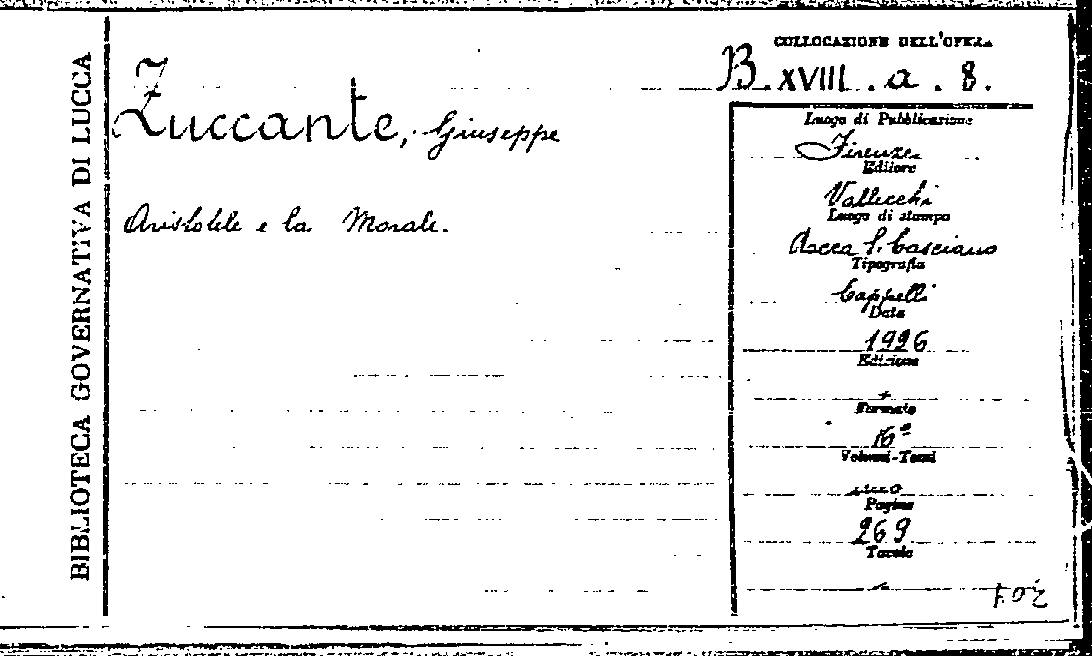 BIBLIOTECA GOVERNATIVA DI LUCCA
Zuccante, Giuseppe
Aristotele e la Morale.
COLLOCAZIONE DELL'OPERA
B. XVIII. a. 8.
Luogo di Pubblicazione
Firenze
Editore
Vallecchi
Luogo di stampa
Rocca S. Casciano
Tipografia
Cappelli
Data
1926
Edizione
Formato
16°
Volumi-Tomi
Pagine
269
Tavole